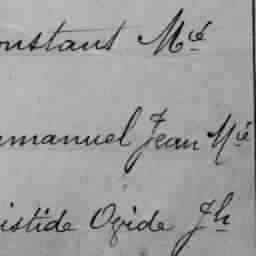 onstant Mie
mmanuel Jean Mie
istide Ovide Jh